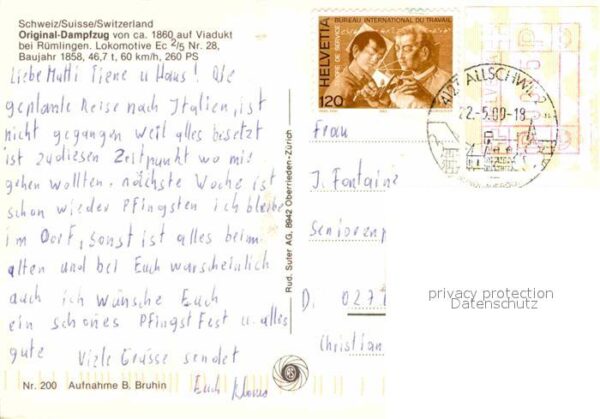 Schweiz/Suisse/Switzerland
Original-Dampfzug von ca. 1860 auf Viadukt
bei Rümlingen. Lokomotive Ec 2/5 Nr. 28,
Baujahr 1858, 46,7 t, 60 km/h, 260 PS
Liebe Mutti Tiene u Haus! Die
geplante Reise nach Italien, ist
nicht gegangen weil alles besetzt
ist zu diesen Zeitpunkt wo mir
gehen wollten. nächste Woche ist
schon wieder Pfingsten ich bleibe
im Dorf, Sonst ist alles beim
alten und bei Euch warscheinlich
auch ich wünsche Euch
ein schönes Pfingst Fest u. alles
gute Viele Grüsse sendet
Euch
Nr. 200 Aufnahme B. Bruhin
Rud. Suter AG, 8942 Oberrieden-Zürich
BUREAU INTERNATIONAL DU TRAVAIL
HELVETIA
120
4127 ALLSCHWIL 2
22.-5.00-18
Frau
J. Fontaine
Seniorenp
D. 027
Christian
privacy protection
Datenschutz